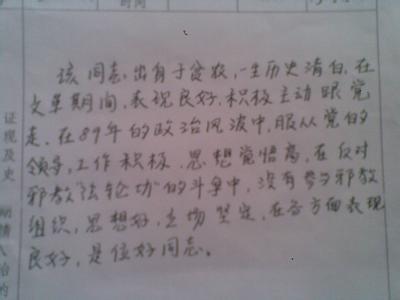 时间
该同志出身于贫农,一生历史清白,在
文革期间,表现良好,积极主动跟党
走,在89年的政治风波中,服从党的
领导,工作积极,思想觉悟高,在反对
邪教“法轮功”的斗争中,没有参与邪教
组织,思想好,立场坚定,在各方面表现
良好,是位好同志。
证
现
及
史
情
治
的